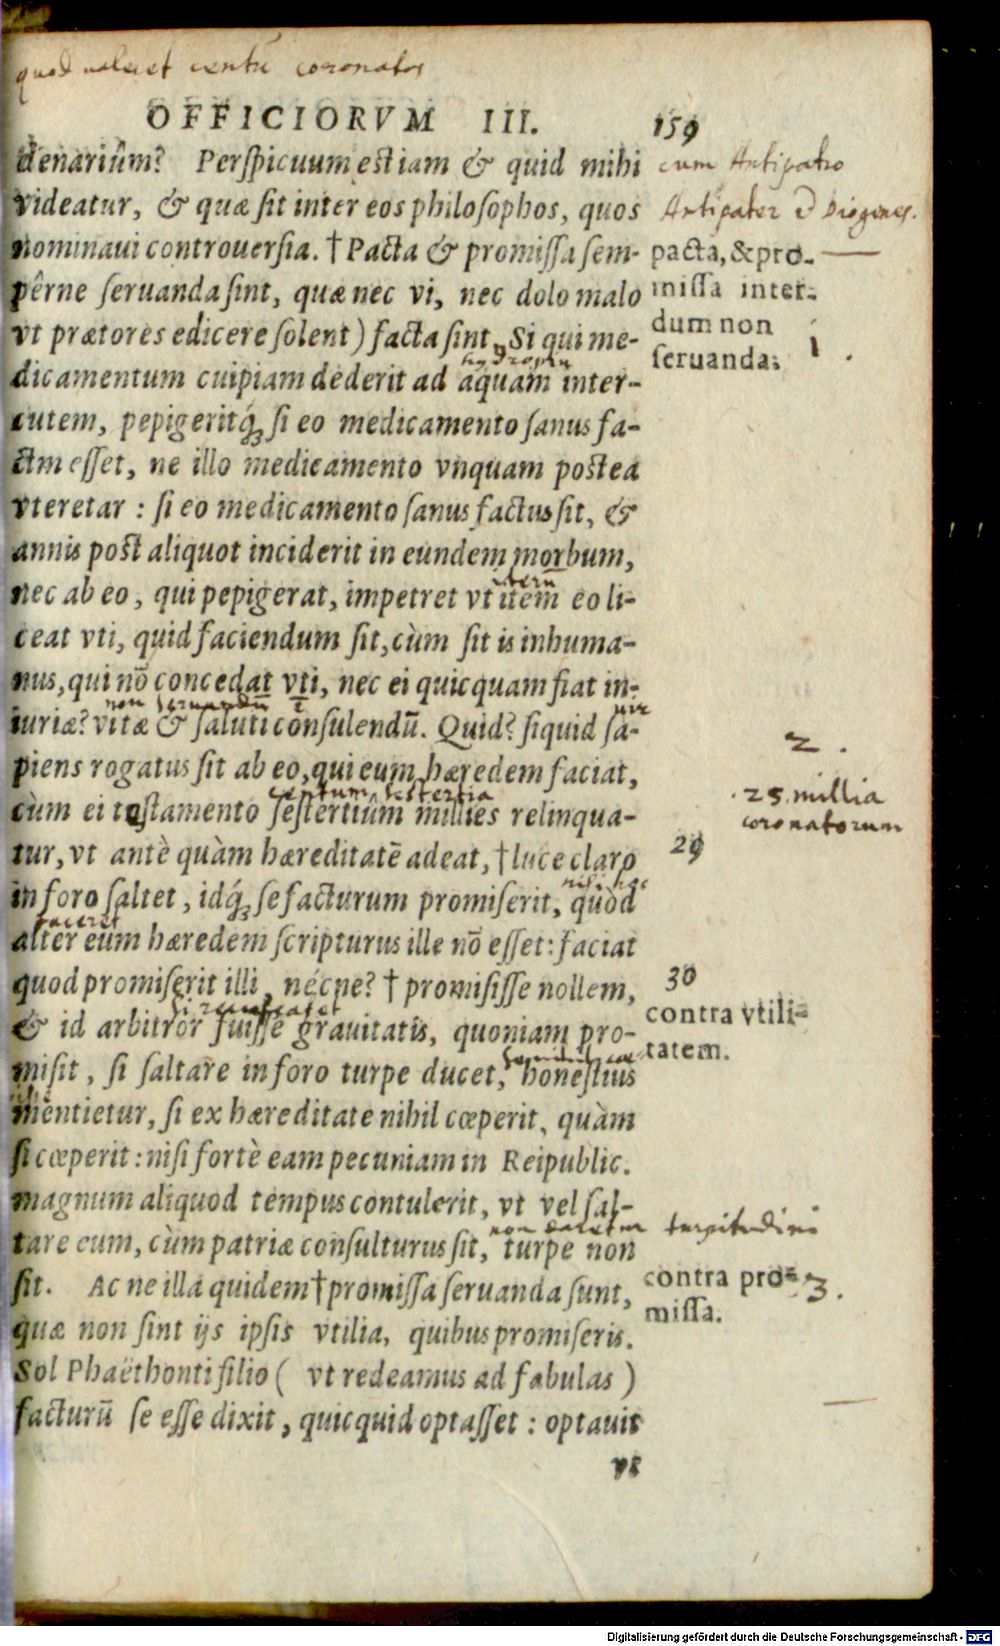 quod valeret centū coronatos
OFFICIORVM III. 159
denariûm? Perſpicuum eſt iam & quid mihi
cum Antipatro
videatur, & quæ ſit inter eos philoſophos, quos
Antipater & Diogenes.
nominaui controuerſia. † Pacta & promiſſa ſem-
pacta, & pro-
pêrne ſeruanda ſint, quæ nec vi, nec dolo malo
miſſa inter-
vt prætores edicere ſolent) facta ſint, Si qui me-
dum non
ſeruanda.
1.
hydropin
dicamentum cuipiam dederit ad aquam inter-
cutem, pepigeritq́; ſi eo medicamento ſanus fa-
ctm eſſet, ne illo medicamento vnquam poſtea
vteretar : ſi eo medicamento ſanus factus ſit, &
annis poſt aliquot inciderit in eundem morbum,
iterū
nec ab eo, qui pepigerat, impetret vt item eo li-
ceat vti, quid faciendum ſit, cùm ſit is inhuma-
nus, qui nō concedat vti, nec ei quicquam fiat in-
non seruandū
vir
iuriæ? vitæ & ſaluti conſulendū. Quid? ſi quid ſa-
2.
piens rogatus ſit ab eo, qui eum hæredem faciat,
centum sestertia
25. millia
cùm ei teſtamento ſeſtertiûm millies relinqua-
coronatorum
tur, vt antè quàm hæreditatē adeat, † luce claro
29
nisi hoc
in foro ſaltet, idq́; ſe facturum promiſerit, quòd
faceret
alter eum hæredem ſcripturus ille nō eſſet: faciat
quod promiſerit illi, nécne? † promiſiſſe nollem,
30
& id arbitror fuiſſe grauitatis, quoniam pro-
contra vtili-
miſit, ſi ſaltare in foro turpe ducet, honeſtius
tatem.
mentietur, ſi ex hæreditate nihil cœperit, quàm
ſi cœperit: niſi fortè eam pecuniam in Reipublic.
magnum aliquod tempus contulerit, vt vel ſal-
turpitudini
tare eum, cùm patriæ conſulturus ſit, turpe non
ſit. Ac ne illa quidem † promiſſa ſeruanda ſunt,
contra pro-
3.
miſſa.
quæ non ſint ijs ipſis vtilia, quibus promiſeris.
Sol Phaëthonti filio ( vt redeamus ad fabulas )
facturū ſe eſſe dixit, quicquid optaſſet : optauit
vt
Digitalisierung gefördert durch die Deutsche Forschungsgemeinschaft - DFG